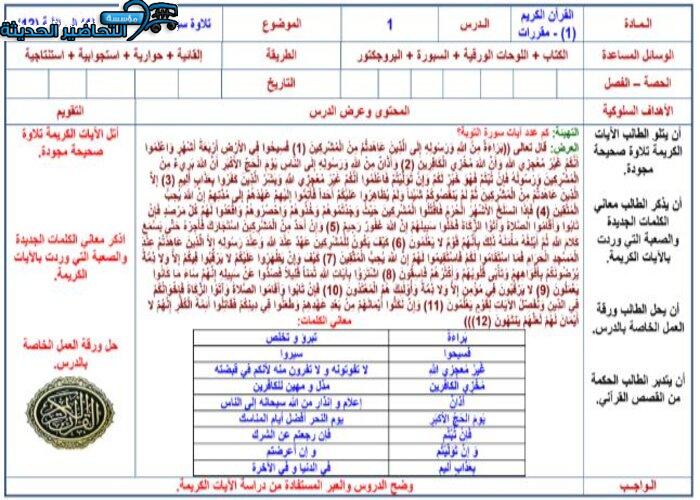 مؤسسة
التحاضير الحديثة
المـادة
القرآن الكريم
(1) - مقررات
الـدرس
1
الموضوع
تلاوة
(12)
الوسائل المساعدة
الكتاب + اللوحات الورقية + السبورة + البروجكتور
الطريقة
إلقائية + حوارية + استجوابية + استنتاجية
الحصة – الفصل
التاريخ
الأهداف السلوكية
المحتوى وعرض الدرس
التقويم
أن يتلو الطالب الآيات
الكريمة تلاوة صحيحة
مجودة.
أن يذكر الطالب معاني
الكلمات الجديدة
والصعبة التي وردت
بالآيات الكريمة.
أن يحل الطالب ورقة
العمل الخاصة بالدرس.
أن يتدبر الطالب الحكمة
من القصص القرآني.
التهيئة: كم عدد آيات سورة التوبة؟
العرض: قال تعالى ((بَرَاءةٌ مِّنَ اللّهِ وَرَسُولِهِ إِلَى الَّذِينَ عَاهَدتُّم مِّنَ الْمُشْرِكِينَ (1) فَسِيحُوا فِي الأَرْضِ أَرْبَعَةَ أَشْهُرٍ وَاعْلَمُوا
أَنَّكُمْ غَيْرُ مُعْجِزِي اللّهِ وَأَنَّ اللّهَ مُخْزِي الْكَافِرِينَ (2) وَأَذَانٌ مِّنَ اللّهِ وَرَسُولِهِ إِلَى النَّاسِ يَوْمَ الْحَجِّ الأَكْبَرِ أَنَّ اللّهَ بَرِيءٌ مِّنَ
الْمُشْرِكِينَ وَرَسُولُهُ فَإِن تُبْتُمْ فَهُوَ خَيْرٌ لَّكُمْ وَإِن تَوَلَّيْتُمْ فَاعْلَمُوا أَنَّكُمْ غَيْرُ مُعْجِزِي اللّهِ وَبَشِّرِ الَّذِينَ كَفَرُوا بِعَذَابٍ أَلِيمٍ (3) إِلاَّ
الَّذِينَ عَاهَدتُّم مِّنَ الْمُشْرِكِينَ ثُمَّ لَمْ يَنقُصُوكُمْ شَيْئًا وَلَمْ يُظَاهِرُوا عَلَيْكُمْ أَحَدًا فَأَتِمُّوا إِلَيْهِمْ عَهْدَهُمْ إِلَى مُدَّتِهِمْ إِنَّ اللّهَ يُحِبُّ
الْمُتَّقِينَ (4) فَإِذَا انسَلَخَ الأَشْهُرُ الْحُرُمُ فَاقْتُلُوا الْمُشْرِكِينَ حَيْثُ وَجَدتُّمُوهُمْ وَخُذُوهُمْ وَاحْصُرُوهُمْ وَاقْعُدُوا لَهُمْ كُلَّ مَرْصَدٍ فَإِن
تَابُوا وَأَقَامُوا الصَّلاَةَ وَآتَوُا الزَّكَاةَ فَخَلُّوا سَبِيلَهُمْ إِنَّ اللّهَ غَفُورٌ رَّحِيمٌ (5) وَإِنْ أَحَدٌ مِّنَ الْمُشْرِكِينَ اسْتَجَارَكَ فَأَجِرْهُ حَتَّى يَسْمَعَ
كَلاَمَ اللّهِ ثُمَّ أَبْلِغْهُ مَأْمَنَهُ ذَلِكَ بِأَنَّهُمْ قَوْمٌ لاَّ يَعْلَمُونَ (6) كَيْفَ يَكُونُ لِلْمُشْرِكِينَ عَهْدٌ عِندَ اللّهِ وَعِندَ رَسُولِهِ إِلاَّ الَّذِينَ عَاهَدتُّمْ عِندَ
الْمَسْجِدِ الْحَرَامِ فَمَا اسْتَقَامُوا لَكُمْ فَاسْتَقِيمُوا لَهُمْ إِنَّ اللّهَ يُحِبُّ الْمُتَّقِينَ (7) كَيْفَ وَإِن يَظْهَرُوا عَلَيْكُمْ لاَ يَرْقُبُوا فِيكُمْ إِلاًّ وَلاَ ذِمَّةً
يُرْضُونَكُم بِأَفْوَاهِهِمْ وَتَأْبَى قُلُوبُهُمْ وَأَكْثَرُهُمْ فَاسِقُونَ (8) اشْتَرَوْا بِآيَاتِ اللّهِ ثَمَنًا قَلِيلاً فَصَدُّوا عَن سَبِيلِهِ إِنَّهُمْ سَاءَ مَا كَانُوا
يَعْمَلُونَ (9) لاَ يَرْقُبُونَ فِي مُؤْمِنٍ إِلاًّ وَلاَ ذِمَّةً وَأُوْلَئِكَ هُمُ الْمُعْتَدُونَ (10) فَإِن تَابُوا وَأَقَامُوا الصَّلاَةَ وَآتَوُا الزَّكَاةَ فَإِخْوَانُكُمْ
فِي الدِّينِ وَنُفَصِّلُ الآيَاتِ لِقَوْمٍ يَعْلَمُونَ (11) وَإِن نَّكَثُوا أَيْمَانَهُم مِّن بَعْدِ عَهْدِهِمْ وَطَعَنُوا فِي دِينِكُمْ فَقَاتِلُوا أَئِمَّةَ الْكُفْرِ إِنَّهُمْ لاَ
أَيْمَانَ لَهُمْ لَعَلَّهُمْ يَنتَهُونَ (12)))
معاني الكلمات:
براءة
تبرؤ و تخلص
فسيحوا
سيروا
غَيْرُ مُعْجِزِي اللّهِ
لا تفوتونه و لا تفرون منه لأنكم في قبضته
مُخْزِي الْكَافِرِينَ
مذل و مهين للكافرين
أَذَانٌ
إعلام و إنذار من الله سبحانه إلى الناس
يَوْمَ الْحَجِّ الأَكْبَرِ
يوم النحر أفضل أيام المناسك
فَإِن تُبْتُمْ
فإن رجعتم عن الشرك
وَ إِن تَوَلَّيْتُمْ
و إن أعرضتم
بعذاب أليم
في الدنيا و في الآخرة
أتل الآيات الكريمة تلاوة
صحيحة مجودة.
اذكر معاني الكلمات الجديدة
والصعبة التي وردت بالآيات
الكريمة.
حل ورقة العمل الخاصة
بالدرس.
القرآن الكريم
الـواجـب
وضح الدروس والعبر المستفادة من دراسة الآيات الكريمة.